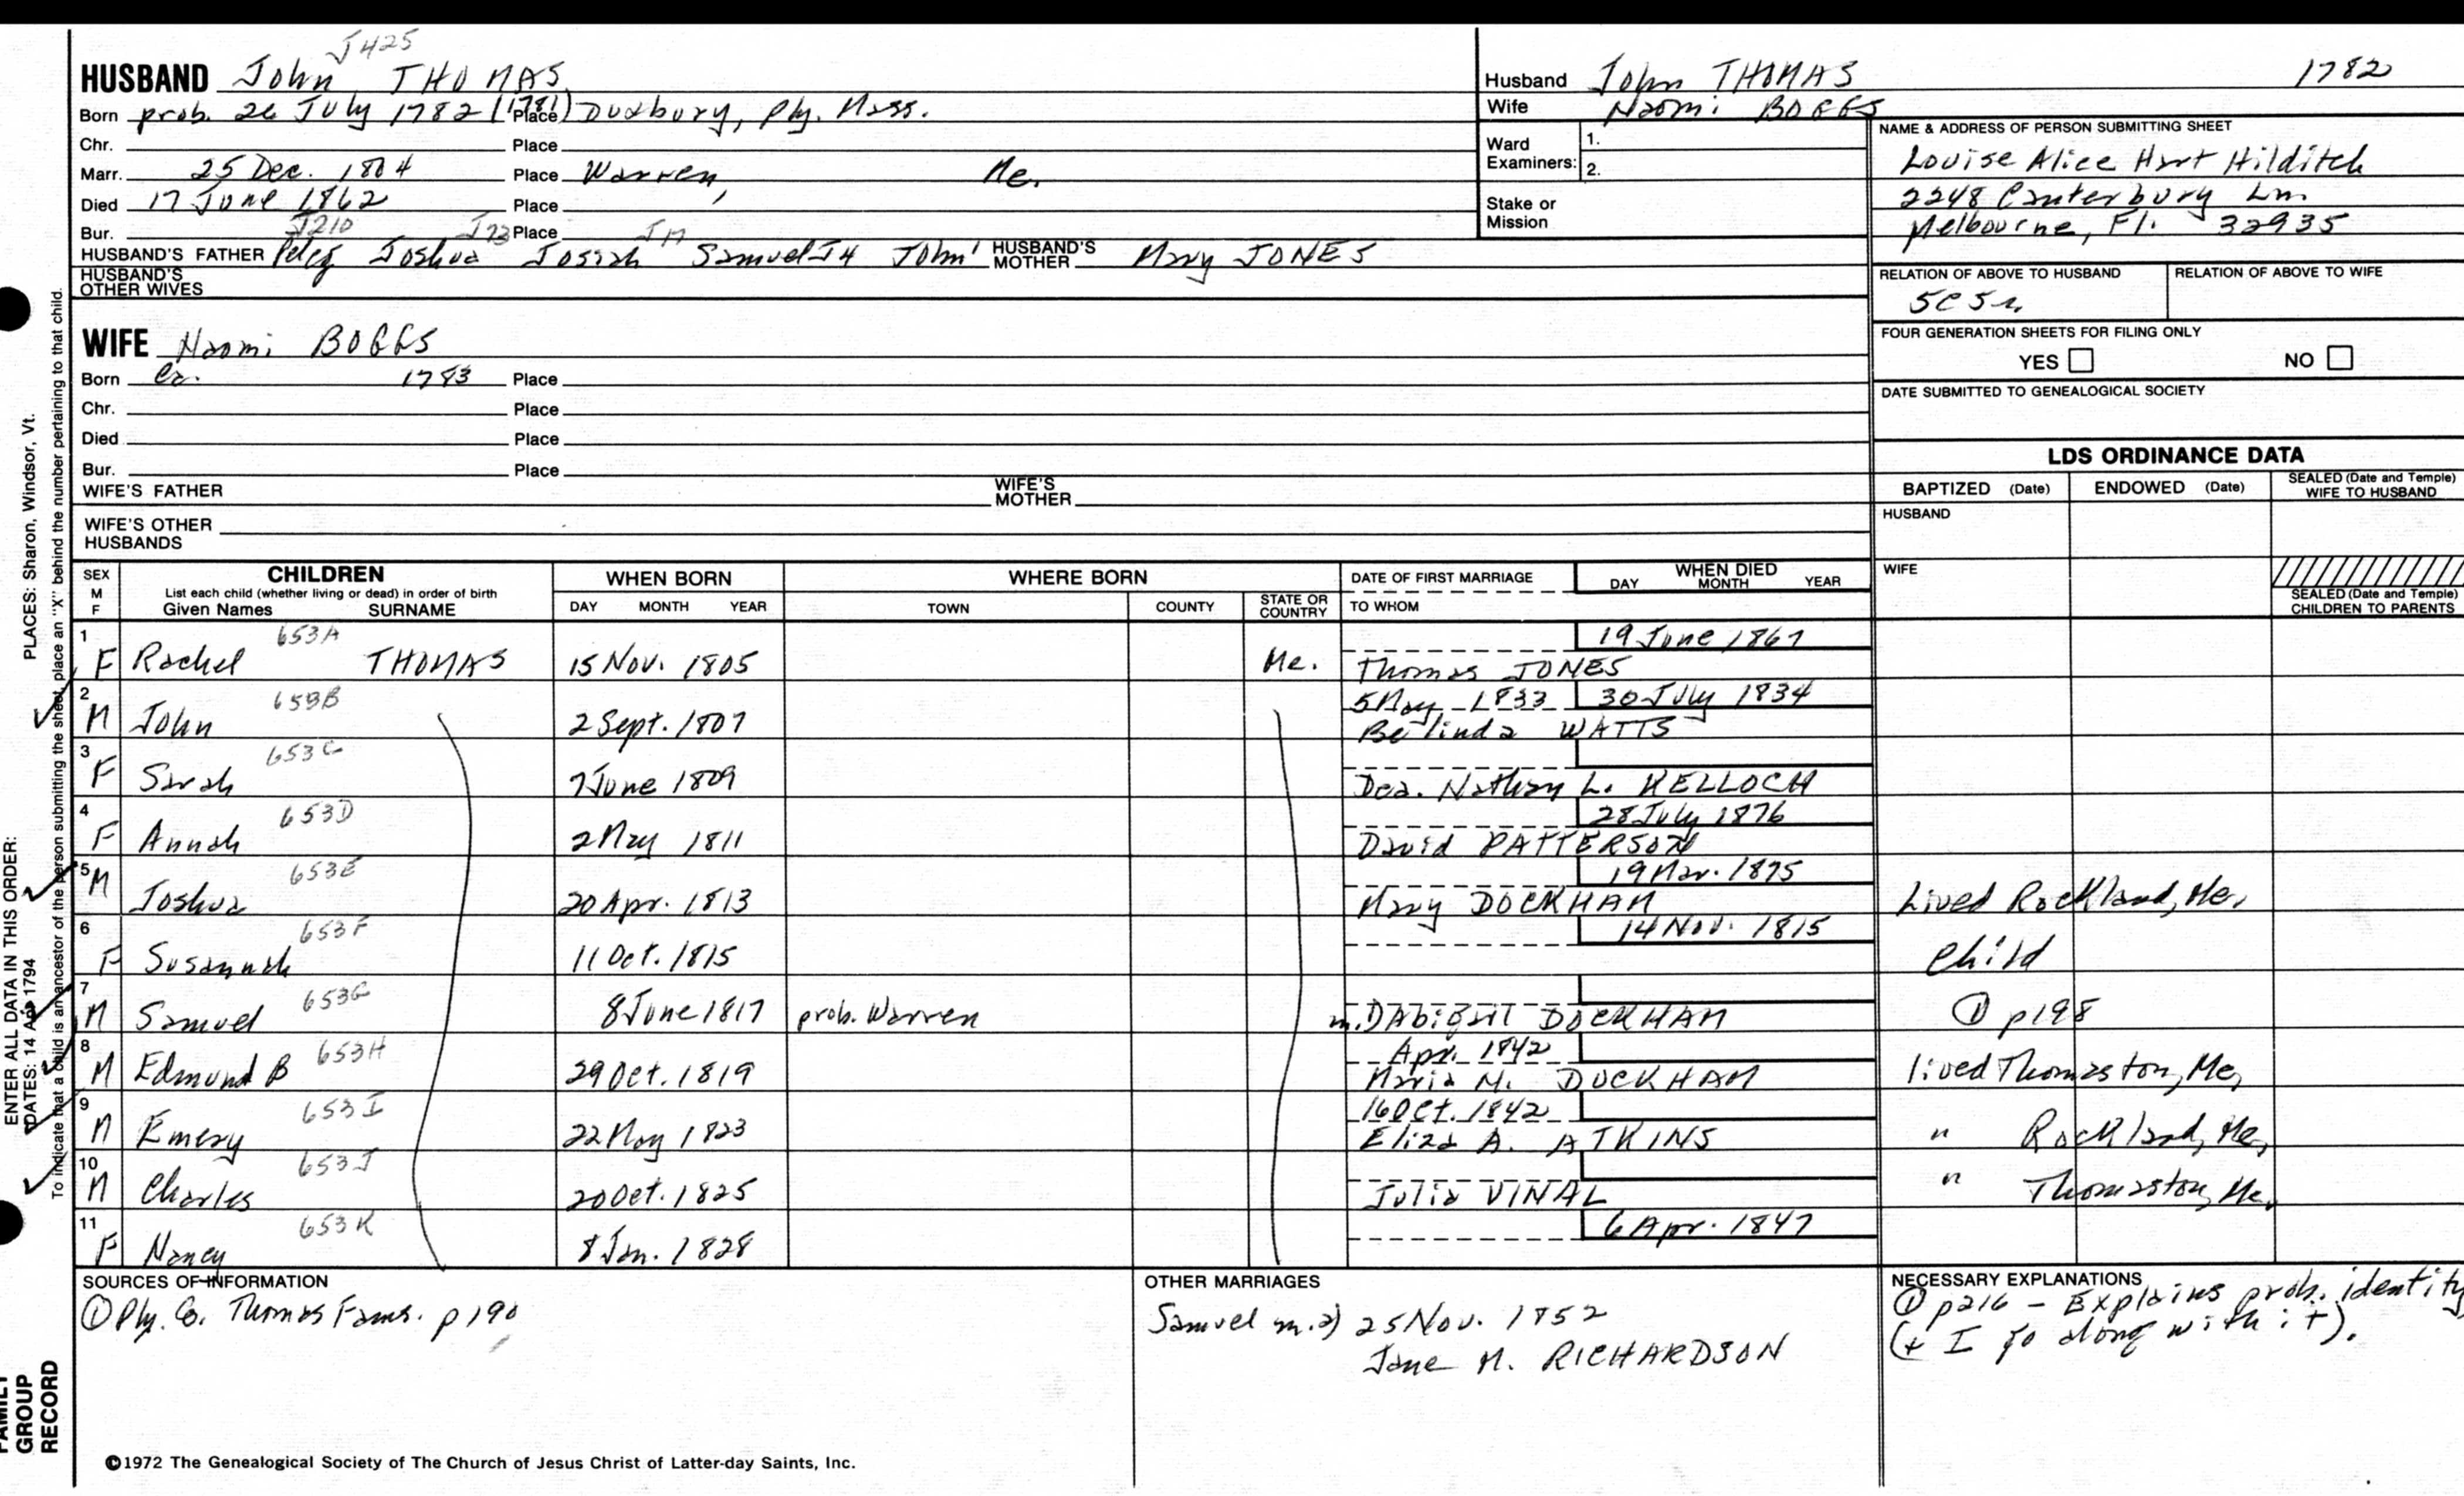 J425
HUSBAND John THOMAS
Born prob. 26 July 1782 (1781) Place Duxbury, Ply. Mass.
Chr. Place
Marr. 25 Dec. 1804 Place Warren, Me.
Died 17 June 1862 Place
Bur. Place
J210 J73 J17
HUSBAND'S FATHER Peleg Joshua Josiah Samuel J4 John' HUSBAND'S MOTHER Mary JONES
HUSBAND'S OTHER WIVES
Husband John THOMAS 1782
Wife Naomi BOGGS
Ward Examiners: 1.
2.
Stake or Mission
NAME & ADDRESS OF PERSON SUBMITTING SHEET
Louise Alice Hart Hilditch
2248 Canterbury Ln.
Melbourne, Fl. 32935
RELATION OF ABOVE TO HUSBAND RELATION OF ABOVE TO WIFE
5C5r.
FOUR GENERATION SHEETS FOR FILING ONLY
YES NO
DATE SUBMITTED TO GENEALOGICAL SOCIETY
WIFE Naomi BOGGS
Born Ca. 1783 Place
Chr. Place
Died Place
Bur. Place
WIFE'S FATHER WIFE'S MOTHER
WIFE'S OTHER HUSBANDS
LDS ORDINANCE DATA
BAPTIZED (Date) ENDOWED (Date) SEALED (Date and Temple) WIFE TO HUSBAND
HUSBAND
WIFE
SEALED (Date and Temple) CHILDREN TO PARENTS
SEX M F
CHILDREN
List each child (whether living or dead) in order of birth
Given Names SURNAME
WHEN BORN
DAY MONTH YEAR
WHERE BORN
TOWN COUNTY STATE OR COUNTRY
DATE OF FIRST MARRIAGE
TO WHOM
WHEN DIED
DAY MONTH YEAR
1 653A 19 June 1867
F Rachel THOMAS 15 Nov. 1805 Me. Thomas JONES
2 653B 5 May 1833 30 July 1834
M John 2 Sept. 1807 Belinda WATTS
3 653C
F Sarah 7 June 1809 Dea. Nathan L. KELLOCH
4 653D 28 July 1876
F Annah 2 May 1811 David PATTERSON
5 653E 19 Mar. 1875
M Joshua 20 Apr. 1813 Mary DOCKHAM Lived Rockland, Me.
6 653F 14 Nov. 1815
F Susannah 11 Oct. 1815 Child
7 653G
M Samuel 8 June 1817 prob. Warren m.1) Abigail DOCKHAM ① p198
8 653H Apr. 1842
M Edmund B 29 Oct. 1819 Maria M. DOCKHAM lived Thomaston, Me,
9 653I 16 Oct. 1842
M Emery 22 May 1823 Eliza A. ATKINS " Rockland, Me,
10 653J
M Charles 20 Oct. 1825 Julia VINAL " Thomaston, Me.
11 653K 6 Apr. 1847
F Nancy 8 Jan. 1828
SOURCES OF INFORMATION
① Ply. Co. Thomas Fams. p190
OTHER MARRIAGES
Samuel m.2) 25 Nov. 1852
Jane M. RICHARDSON
NECESSARY EXPLANATIONS
① p216 - Explains prob. identity
(+ I go along with it).
©1972 The Genealogical Society of The Church of Jesus Christ of Latter-day Saints, Inc.
FAMILY GROUP RECORD
ENTER ALL DATA IN THIS ORDER:
DATES: 14 Apr 1794
PLACES: Sharon, Windsor, Vt.
To indicate that a child is an ancestor of the person submitting the sheet, place an "X" behind the number pertaining to that child.